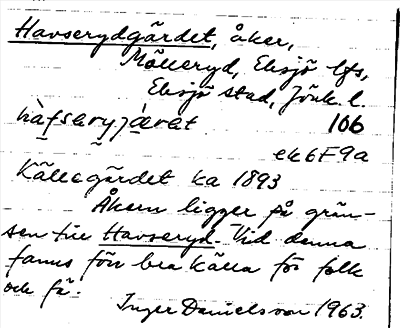 Havserydgärdet, åker,
Mölleryd, Eksjö lfs,
Eksjö stad, Jönk. l.
hàfseryjæret 106
ek6F9a
Källegärdet ka 1893
Åkern ligger på grän-
sen till Havseryd. Vid denna
fanns förr bra källa för folk
och fä.
Inger Danielsson 1963.